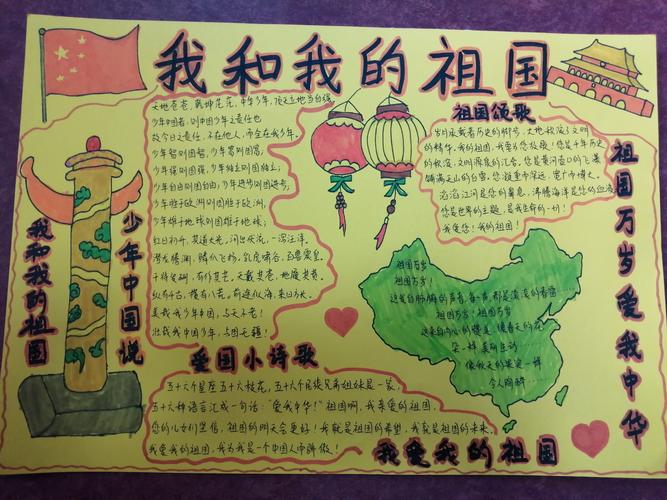 我和我的祖国
天地苍苍，乾坤茫茫，中华少年，顶天立地当自强。
少年中国者，则中国少年之责任也
故今日之责任，不在他人，而全在我少年。
少年智则国智，少年富则国富；
少年强则国强，少年独立则国独立；
少年自由则国自由，少年进步则国进步；
少年胜于欧洲则国胜于欧洲，
少年雄于地球则国雄于地球；
红日初升，其道大光，河出伏流，一泻汪洋。
潜龙腾渊，鳞爪飞扬，乳虎啸谷，百兽震惶。
干将发硎，有作其芒。天戴其苍，地履其黄。
纵有千古，横有八荒。前途似海，来日方长。
美哉我少年中国，与天不老！
壮哉我中国少年，与国无疆！
我和我的祖国
少年中国说
祖国颂歌
岁月承载着历史的
的精华，我的祖国，我要为您放歌！您是千年历史
铺满天山的白雪，您凝重中深远，宽广中博大。
滔滔江河是您的鼻息，沸腾海洋是您的血液
您是世界的主题，是我生命的一切！
我爱您！我的祖国！
祖国万岁
爱我中华
祖国万岁
祖国万岁！
祖国万岁！祖国万岁！
令人陶醉
爱国小诗歌
五十六个星座五十六枝花，五十六个民族兄弟姐妹是一家，
五十六种语言汇成一句话："爱我中华！"祖国啊，我亲爱的祖国，
您的儿女们坚信，祖国的明天会更好！我就是祖国的希望，我就是祖国的未来。
我爱我的祖国，我为我是一个中国人而骄傲！
我爱我的祖国